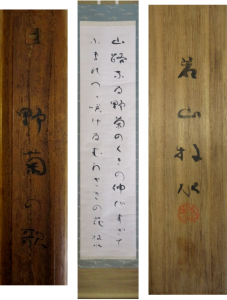 野菊の歌
山路なる野菊のくきの伸びすぎて
ふまれつつ咲けるむらさきの花 牧水
若山牧水